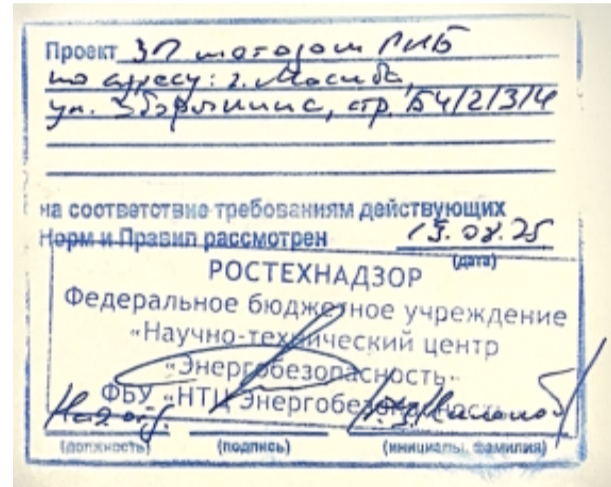 Проект ЭП
по адресу: г. Москва,
ул. стр. 54/2/3/4
на соответствие требованиям действующих
Норм и Правил рассмотрен
(дата)
РОСТЕХНАДЗОР
Федеральное бюджетное учреждение
«Научно-технический центр
«Энергобезопасность»
ФБУ «НТЦ Энергобезопасность»
(должность) (подпись) (инициалы, фамилия)